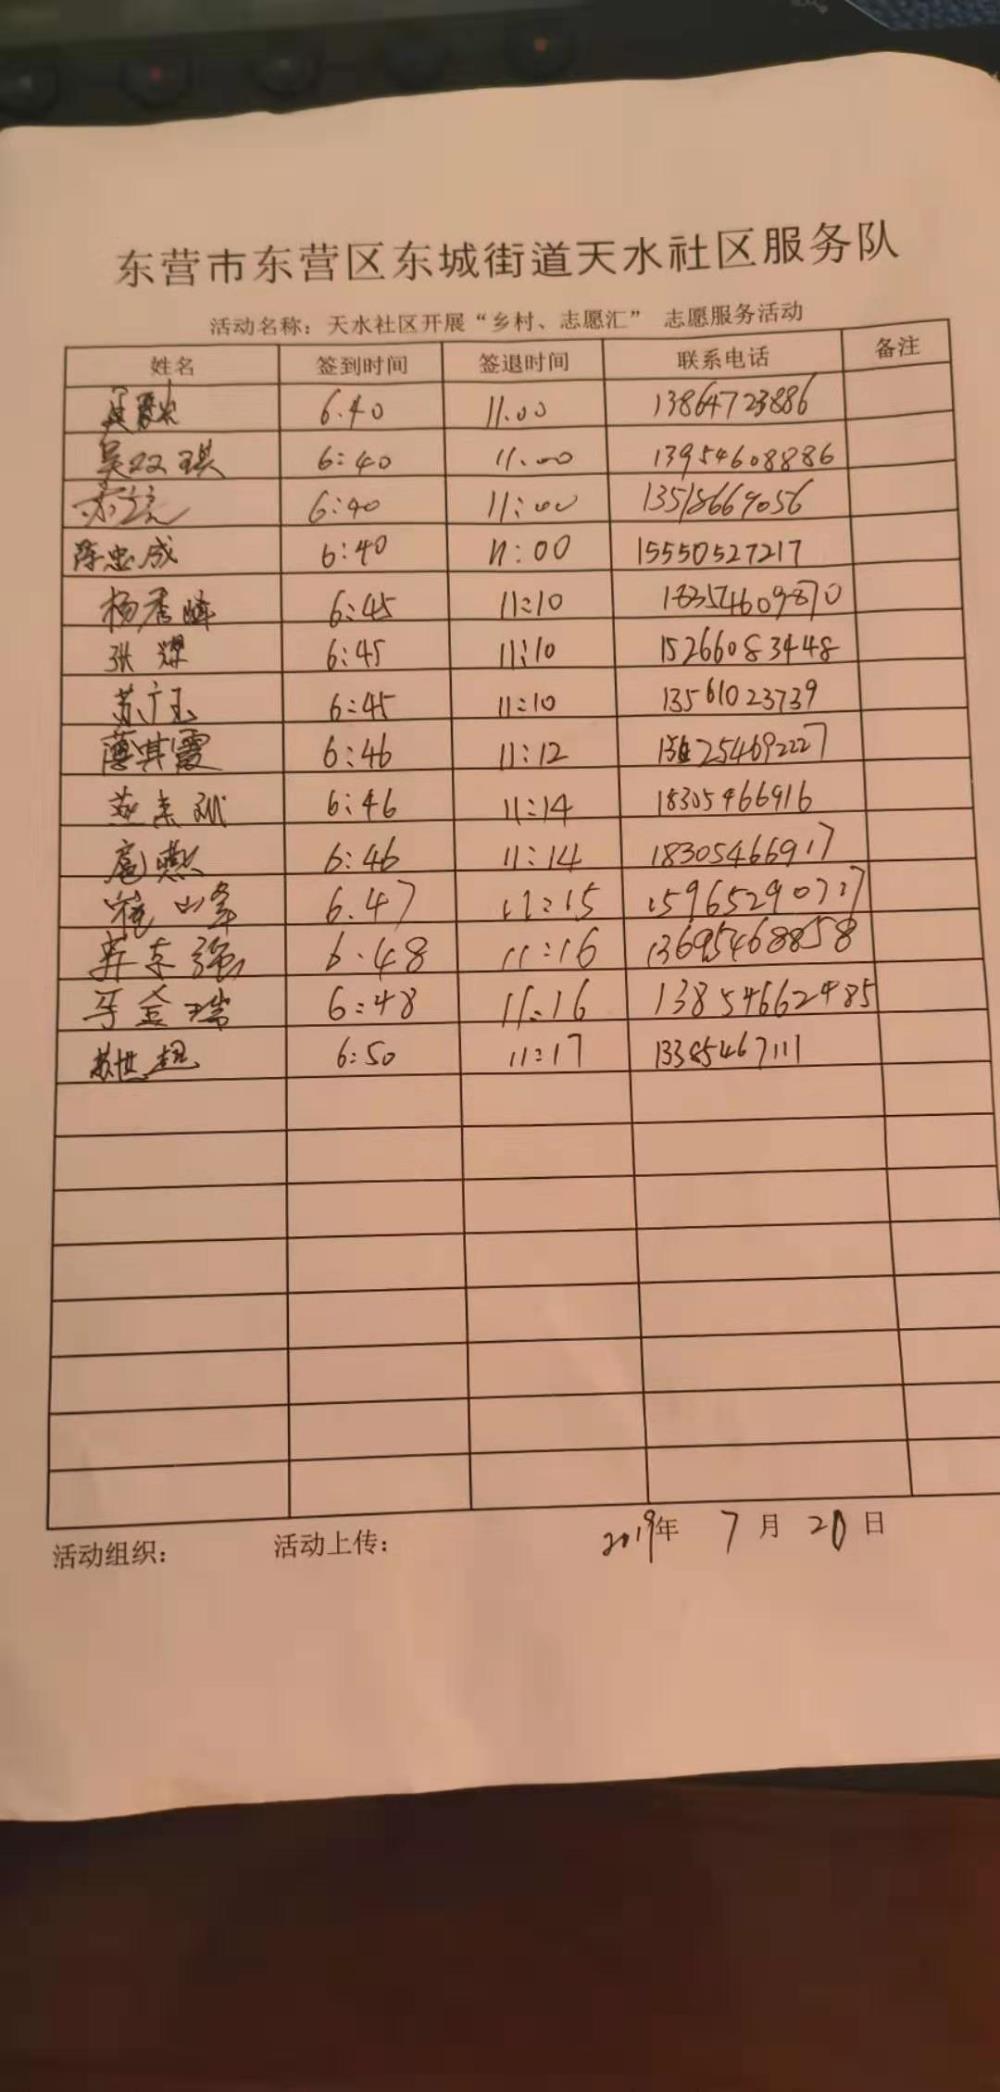 东营市东营区东城街道天水社区服务队
活动名称：天水社区开展“乡村、志愿汇” 志愿服务活动
姓名 签到时间 签退时间 联系电话 备注
6.40 11.00 13864723886
吴双琪 6:40 11.00 13954608886
6:40 11:00 13518669056
陈忠成 6:40 11:00 15550527217
杨秀峰 6:45 11:10 18354609870
张 6:45 11:10 15266083448
苏广玉 6:45 11:10 13561023739
薄其霞 6:46 11:12
6:46 11:14 18305466916
扈燕 6:46 11:14 18305466917
崔山峰 6.47 11:15 15965290717
6.48 11:16 13695468858
6:48 11:16 13854662485
苏世超 6:50 11:17 13385467111
活动组织： 活动上传： 2019年 7月 20日